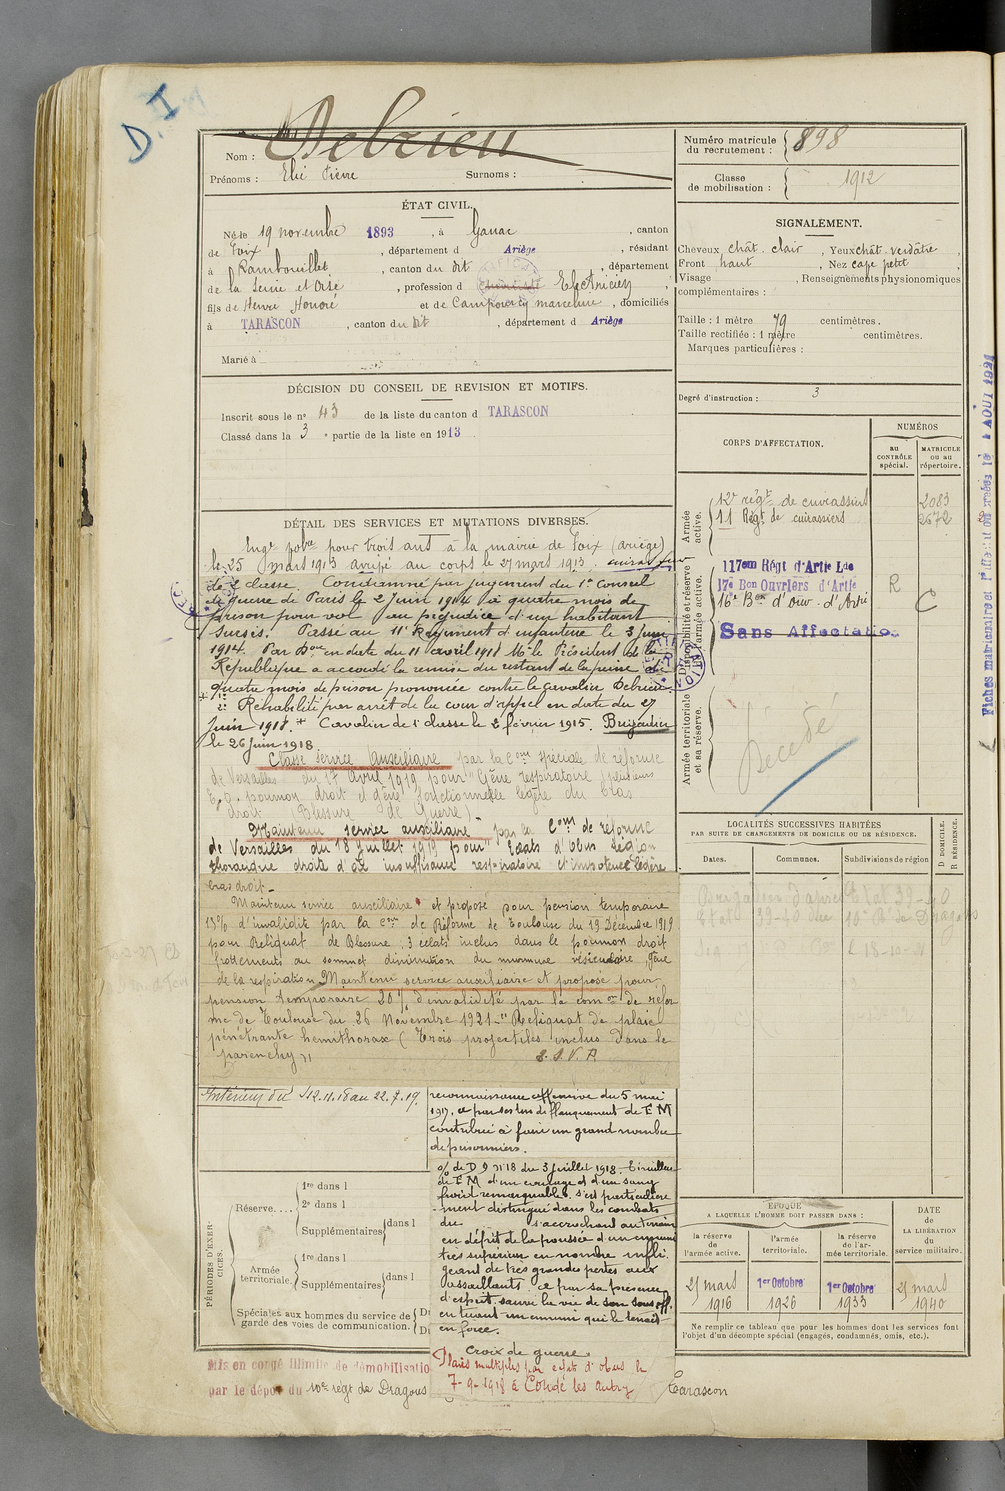 D. I
Nom : Delrieu
Prénoms : Elie Pierre Surnoms :
Numéro matricule
du recrutement : 898
Classe
de mobilisation : 1912
ÉTAT CIVIL.
Né le 19 novembre 1893, à Ganac, canton
de Foix, département d Ariège, résidant
à Rambouillet, canton du dit, département
de la Seine et Oise, profession d Electricien,
fils de Henri Honoré et de Campourcy marceline, domiciliés
à TARASCON, canton du dit, département d Ariège
Marié à
SIGNALEMENT.
Cheveux chât. clair, Yeux chât. verdâtre,
Front haut, Nez cave petit,
Visage , Renseignements physionomiques
complémentaires :
Taille : 1 mètre 79 centimètres.
Taille rectifiée : 1 mètre centimètres.
Marques particulières :
Degré d'instruction : 3
DÉCISION DU CONSEIL DE REVISION ET MOTIFS.
Inscrit sous le n° 43 de la liste du canton d TARASCON
Classé dans la 3 e partie de la liste en 1913
CORPS D'AFFECTATION.
NUMÉROS
au
CONTRÔLE
spécial.
MATRICULE
ou au
répertoire.
Armée
active.
12e régt de cuirassiers 2083
11 Régt de cuirassiers 2672
Disponibilité et réserve
de l'armée active.
117em Régt d'Artie Lde
17e Bon Ouvriers d'Artie R
16e Bon d'ouv. d'Artie C
Sans Affectation
Armée territoriale
et sa réserve.
Décédé
DÉTAIL DES SERVICES ET MUTATIONS DIVERSES.
Engé volre pour trois ans à la mairie de Foix (Ariège)
le 25 mars 1913 arrivé au corps le 27 mars 1913.
de 2 classe. Condamné par jugement du 1er Conseil
de guerre de Paris le 2 Juin 1914 à quatre mois de
prison pour vol au préjudice d'un habitant
Sursis. Passé au 11e Régiment d'infanterie le 3 Juin
1914. Par Don en date du 11 avril 1918 Mr le Président de la
République a accordé la remise du restant de la peine de
quatre mois de prison prononcée contre le cavalier Delrieu.
Réhabilité par arrêt de la cour d'appel en date du 27
Juin 1918. Cavalier de 1e classe le 2 février 1915. Brigadier
le 26 Juin 1918.
Classé service auxiliaire par la Com spéciale de réforme
de Versailles du 17 avril 1919 pour "Gêne respiratoire
poumon droit et gêne fonctionnelle légère du bras
droit (Blessure de Guerre).
Maintenu service auxiliaire par la Com de réforme
de Versailles du 18 Juillet 1919 pour éclats d'obus région
thoracique droite d'où insuffisance respiratoire et impotence légère
bras droit.
Maintenu service auxiliaire et proposé pour pension temporaire
15% d'invalidité par la Com de Réforme de Toulouse du 19 Décembre 1919
pour Reliquat de Blessure, 3 éclats inclus dans le poumon droit
frottements au sommet diminution du murmure vésiculaire, gêne
de la respiration. Maintenu service auxiliaire et proposé pour
pension temporaire 20% d'invalidité par la com on de réfor
me de Toulouse du 26 Novembre 1921 "Reliquat de plaie
pénétrante hemithorax (Trois projectiles inclus dans le
parenchyme)
T. S. V. P.
Intérieur du 12.11.18 au 22.7.19.
reconnaissance offensive du 5 mai
1917, a par ses tirs de flanquement de F M
contribué à faire un grand nombre
de prisonniers.
O/ de D 9 n°18 du 3 Juillet 1918. Tirailleur
de F M d'un courage et d'un sang
froid remarquables. s'est particulière
-ment distingué dans les combats
du s'accrochant au terrain
en dépit de la poussée d'un ennemi
très supérieur en nombre infli
geant de très grandes pertes aux
assaillants. a par sa présence
d'esprit sauvé la vie de son sous off.
en tuant un ennemi qui le tenait
en force.
Croix de guerre.
Plaies multiples par éclats d'obus le
7-9-1918 à Condé les Autry
LOCALITÉS SUCCESSIVES HABITÉES
PAR SUITE DE CHANGEMENTS DE DOMICILE OU DE RÉSIDENCE.
Dates. Communes. Subdivisions de région
D DOMICILE.
R RÉSIDENCE.
PÉRIODES D'EXERCICES.
Réserve....
1re dans l
2e dans l
Supplémentaires dans l
Armée
territoriale.
1re dans l
Supplémentaires dans l
Spéciales aux hommes du service de
garde des voies de communication.
ÉPOQUE
A LAQUELLE L'HOMME DOIT PASSER DANS :
la réserve
de
l'armée active.
l'armée
territoriale.
la réserve
de l'ar-
mée territoriale.
DATE
de
LA LIBÉRATION
du
service militaire.
25 mars
1916
1er Octobre
1926
1er Octobre
1933
25 mars
1940
Ne remplir ce tableau que pour les hommes dont les services font
l'objet d'un décompte spécial (engagés, condamnés, omis, etc.).
Mis en congé illimité de démobilisation
par le dépôt du 10e régt de Dragons
Tarascon